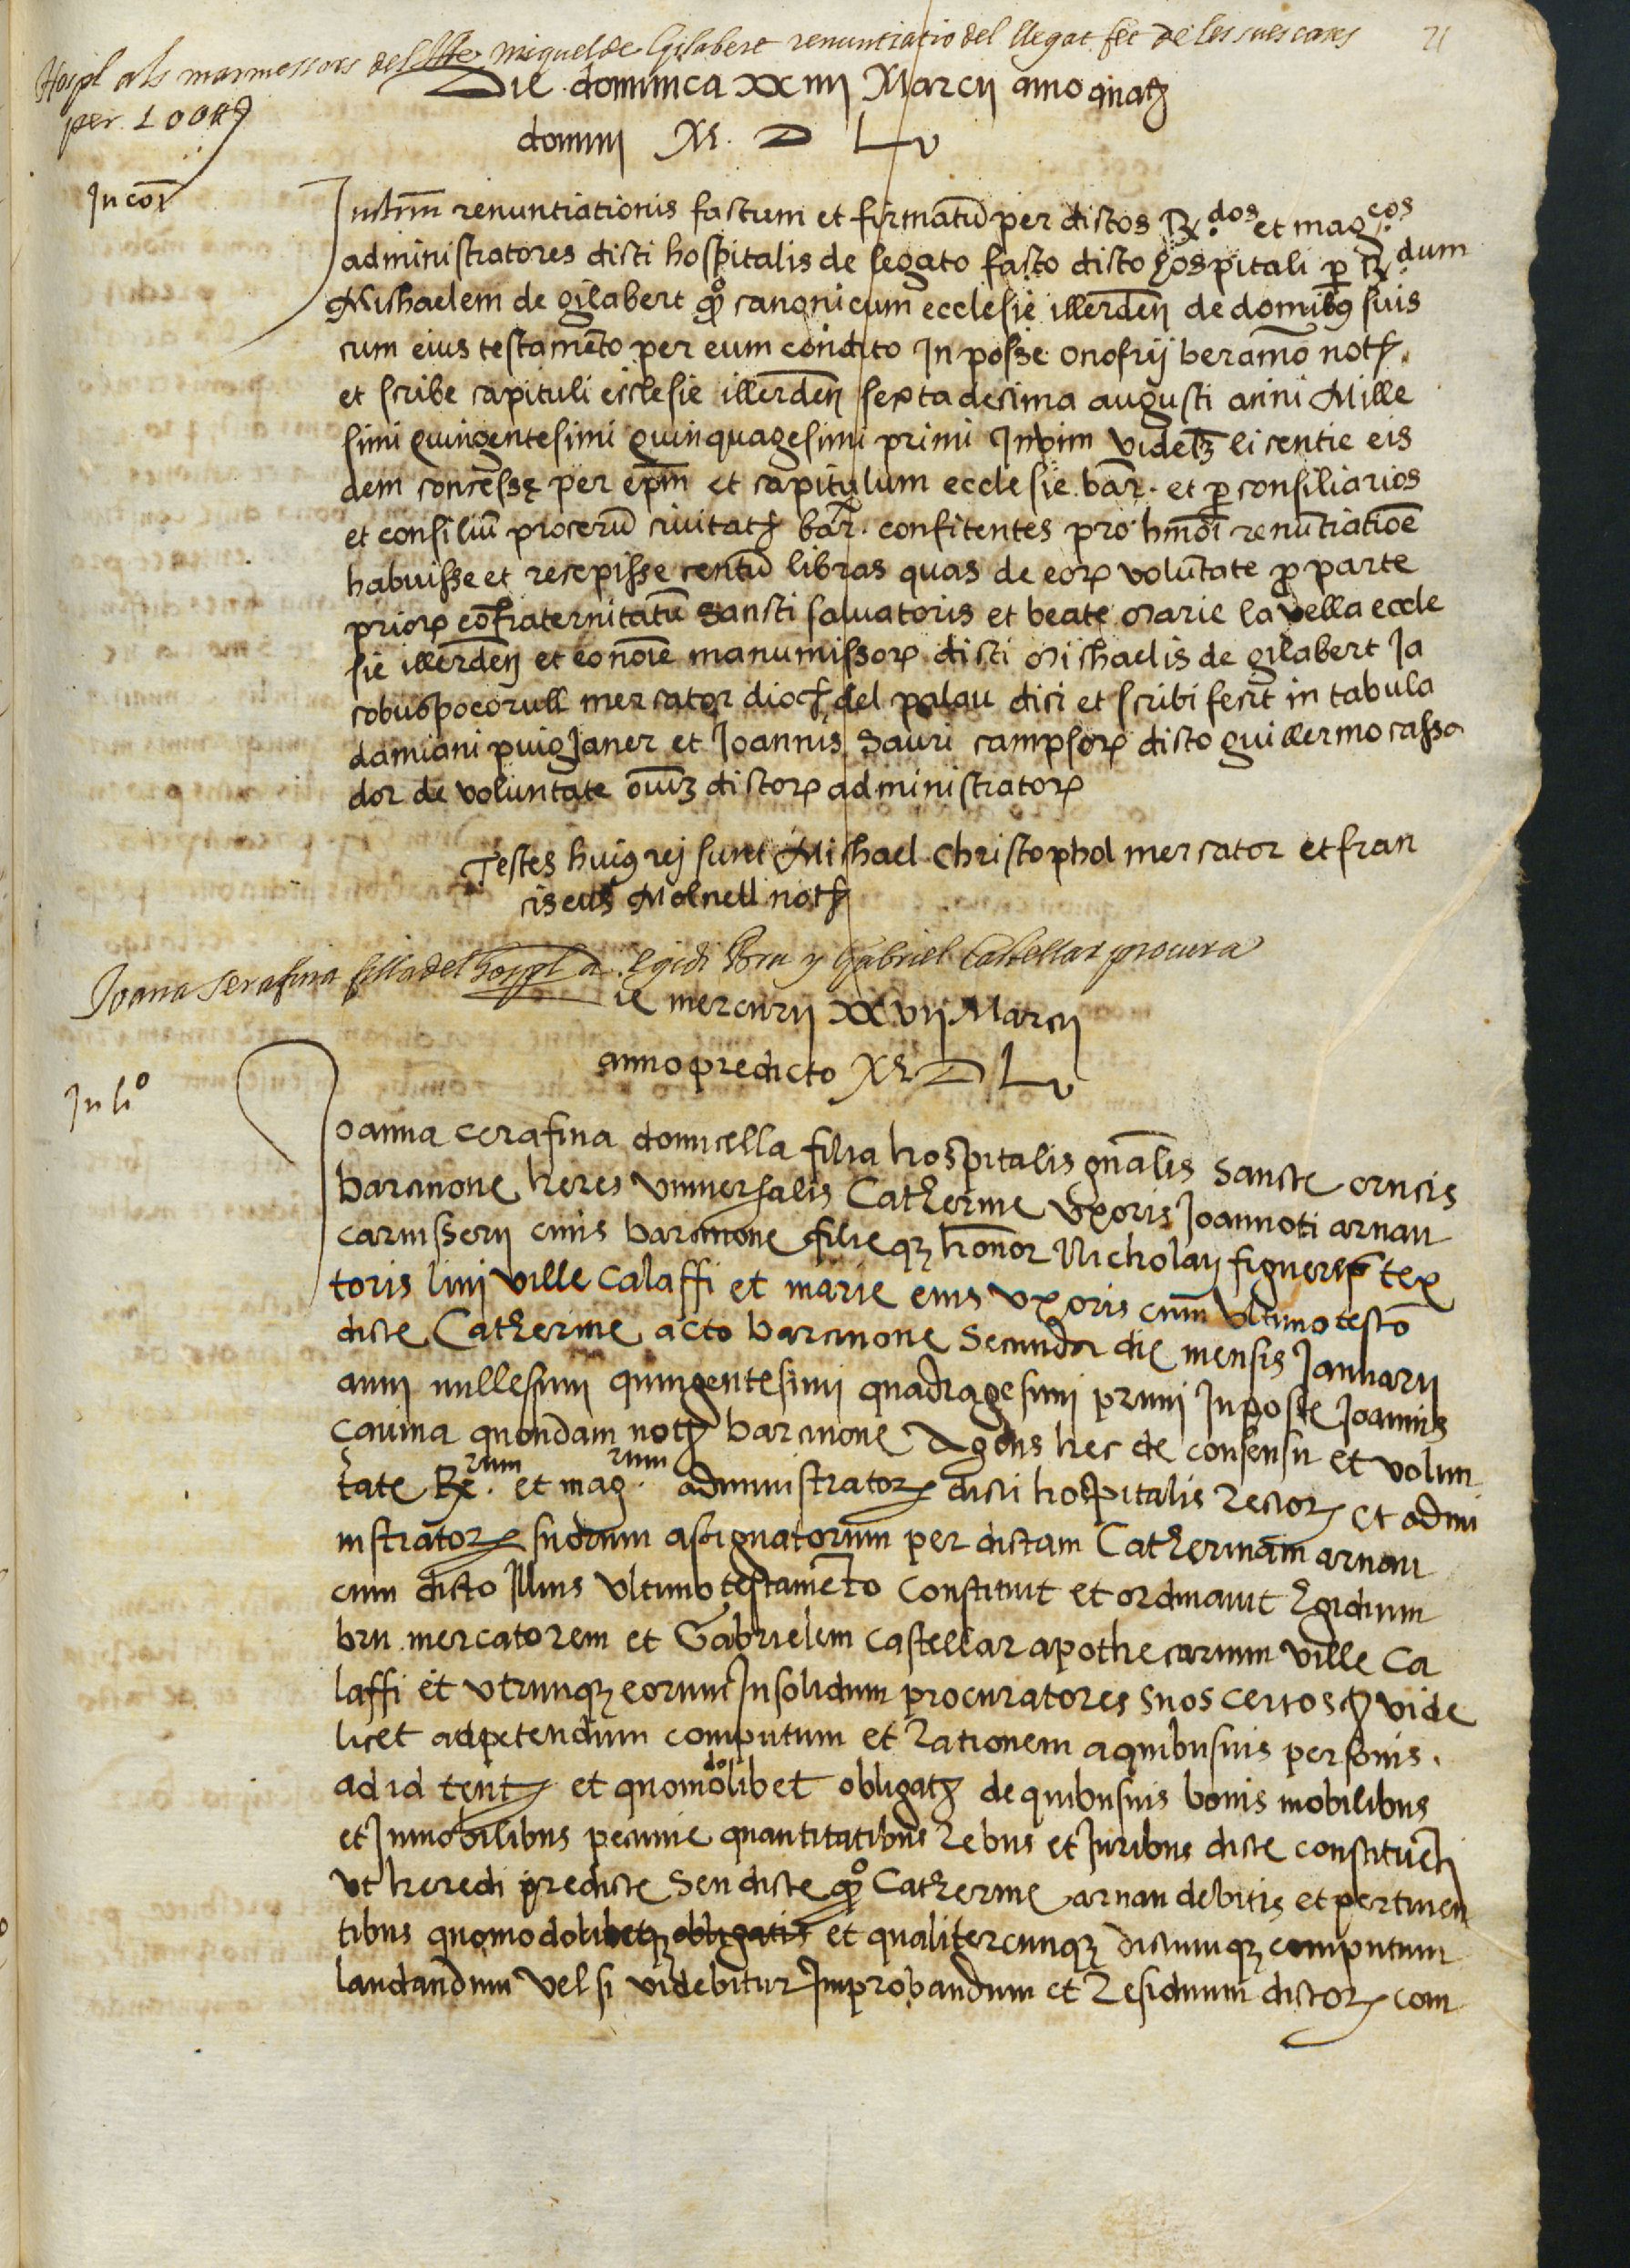 21
Hospl als marmessors del Mº. miquel de Gilabert renuntiatio del llegat fet de les sues cases
per 100 ℔
Die dominica xxiiii Marcii anno a natȝ
domini M. D Lv
In cōi
Instrm̄ renuntiationis factum et firmatū per dictos Rx.dos et mag.cos
administratores dicti hospitalis de legato facto dicto hospitali ꝑ Rx.dum
Michaelem de gilabert qº canonicum ecclesie illerdeñ de domibꝰ suis
cum eius testamēto per eum condito In posse onofrij beramō notȝ.
et scribe capituli ecclesie illerdeñ sexta decima augusti anni Mille
simi quingentesimi quinquagesimi primi In vim videlȝ licentie eis
dem concesse per ep̄m et capitulum ecclesie bar̄. et ꝑ consiliarios
et consiliū procerū ciuitatȝ bar̄. confitentes pro hm̄oi renūtiatioē
habuisse et recepisse centū libras quas de eorꝝ volūtate ꝓ parte
priorꝝ cōfraternitatū Sancti saluatoris et beate Marie la vella eccle
sie illerdeñ et eo noīe manumissorꝝ dicti Michaelis de gilabert Ja
cobus pocorull mercator diocȝ del palau dici et scribi fecit in tabula
damiani puigJaner et Joannis Sauri campsorꝝ dicto guillermo cassa
dor de voluntate oīuȝ dictorꝝ administratorꝝ
Testes huiꝰ rej sunt Michael Christophol mercator et fran
ciscus Molnell notȝ
Joana Serafina filla del hospl a Egidi Bru y Gabriel Castellar procura
ie mercurij xxvij Marcij
anno predicto M D Lv
In liº
Joanna cerafina domicella filia hospitalis gn̄alis Sancte crucis
barcinone heres vniuersalis Catherine vxoris Joannoti arnau
carnisserij ciuis barcinone filieqȝ honor Nicholay figueres tex
toris lini ville Calaffi et marie eius vxoris cum vltimo testō
dicte Catherine acto barcinone Secunda die mensis Januarij
anni millesimi quingentesimi quadragesimi primi In posse Joannis
Cauina quondam notȝ barcinone Agens hec de consensu et volun
tate Rx.rum et mag.rum administratorꝝ dicti hospitalis Rectorꝝ et admi
nistratorꝝ suorum assignatorum per dictam Catherinam arnau
cum dicto Illius vltimo testamēto Constituit et ordinauit Egidium
bru mercatorem et Gabrielem castellar apothecarium ville Ca
laffi et vtrunqȝ eorum Insolidum procuratores suos certos ȝ vide
licet ad petendum computum et Rationem a quibusuis personis.
ad id tentȝ et quomodolibet obligatȝ de quibusuis bonis mobilibus
et Inmobilibus pecunie quantitatibus Rebus et Juribus dicte constituēti
vt heredi predicte Seu dicte qº Catherine arnau debitis et pertinen
tibus quomodolibetqȝ obligatis et qualitercunqȝ dictumqȝ computum
laudandum vel si videbitur Improbandum et Residuum dictorꝝ com